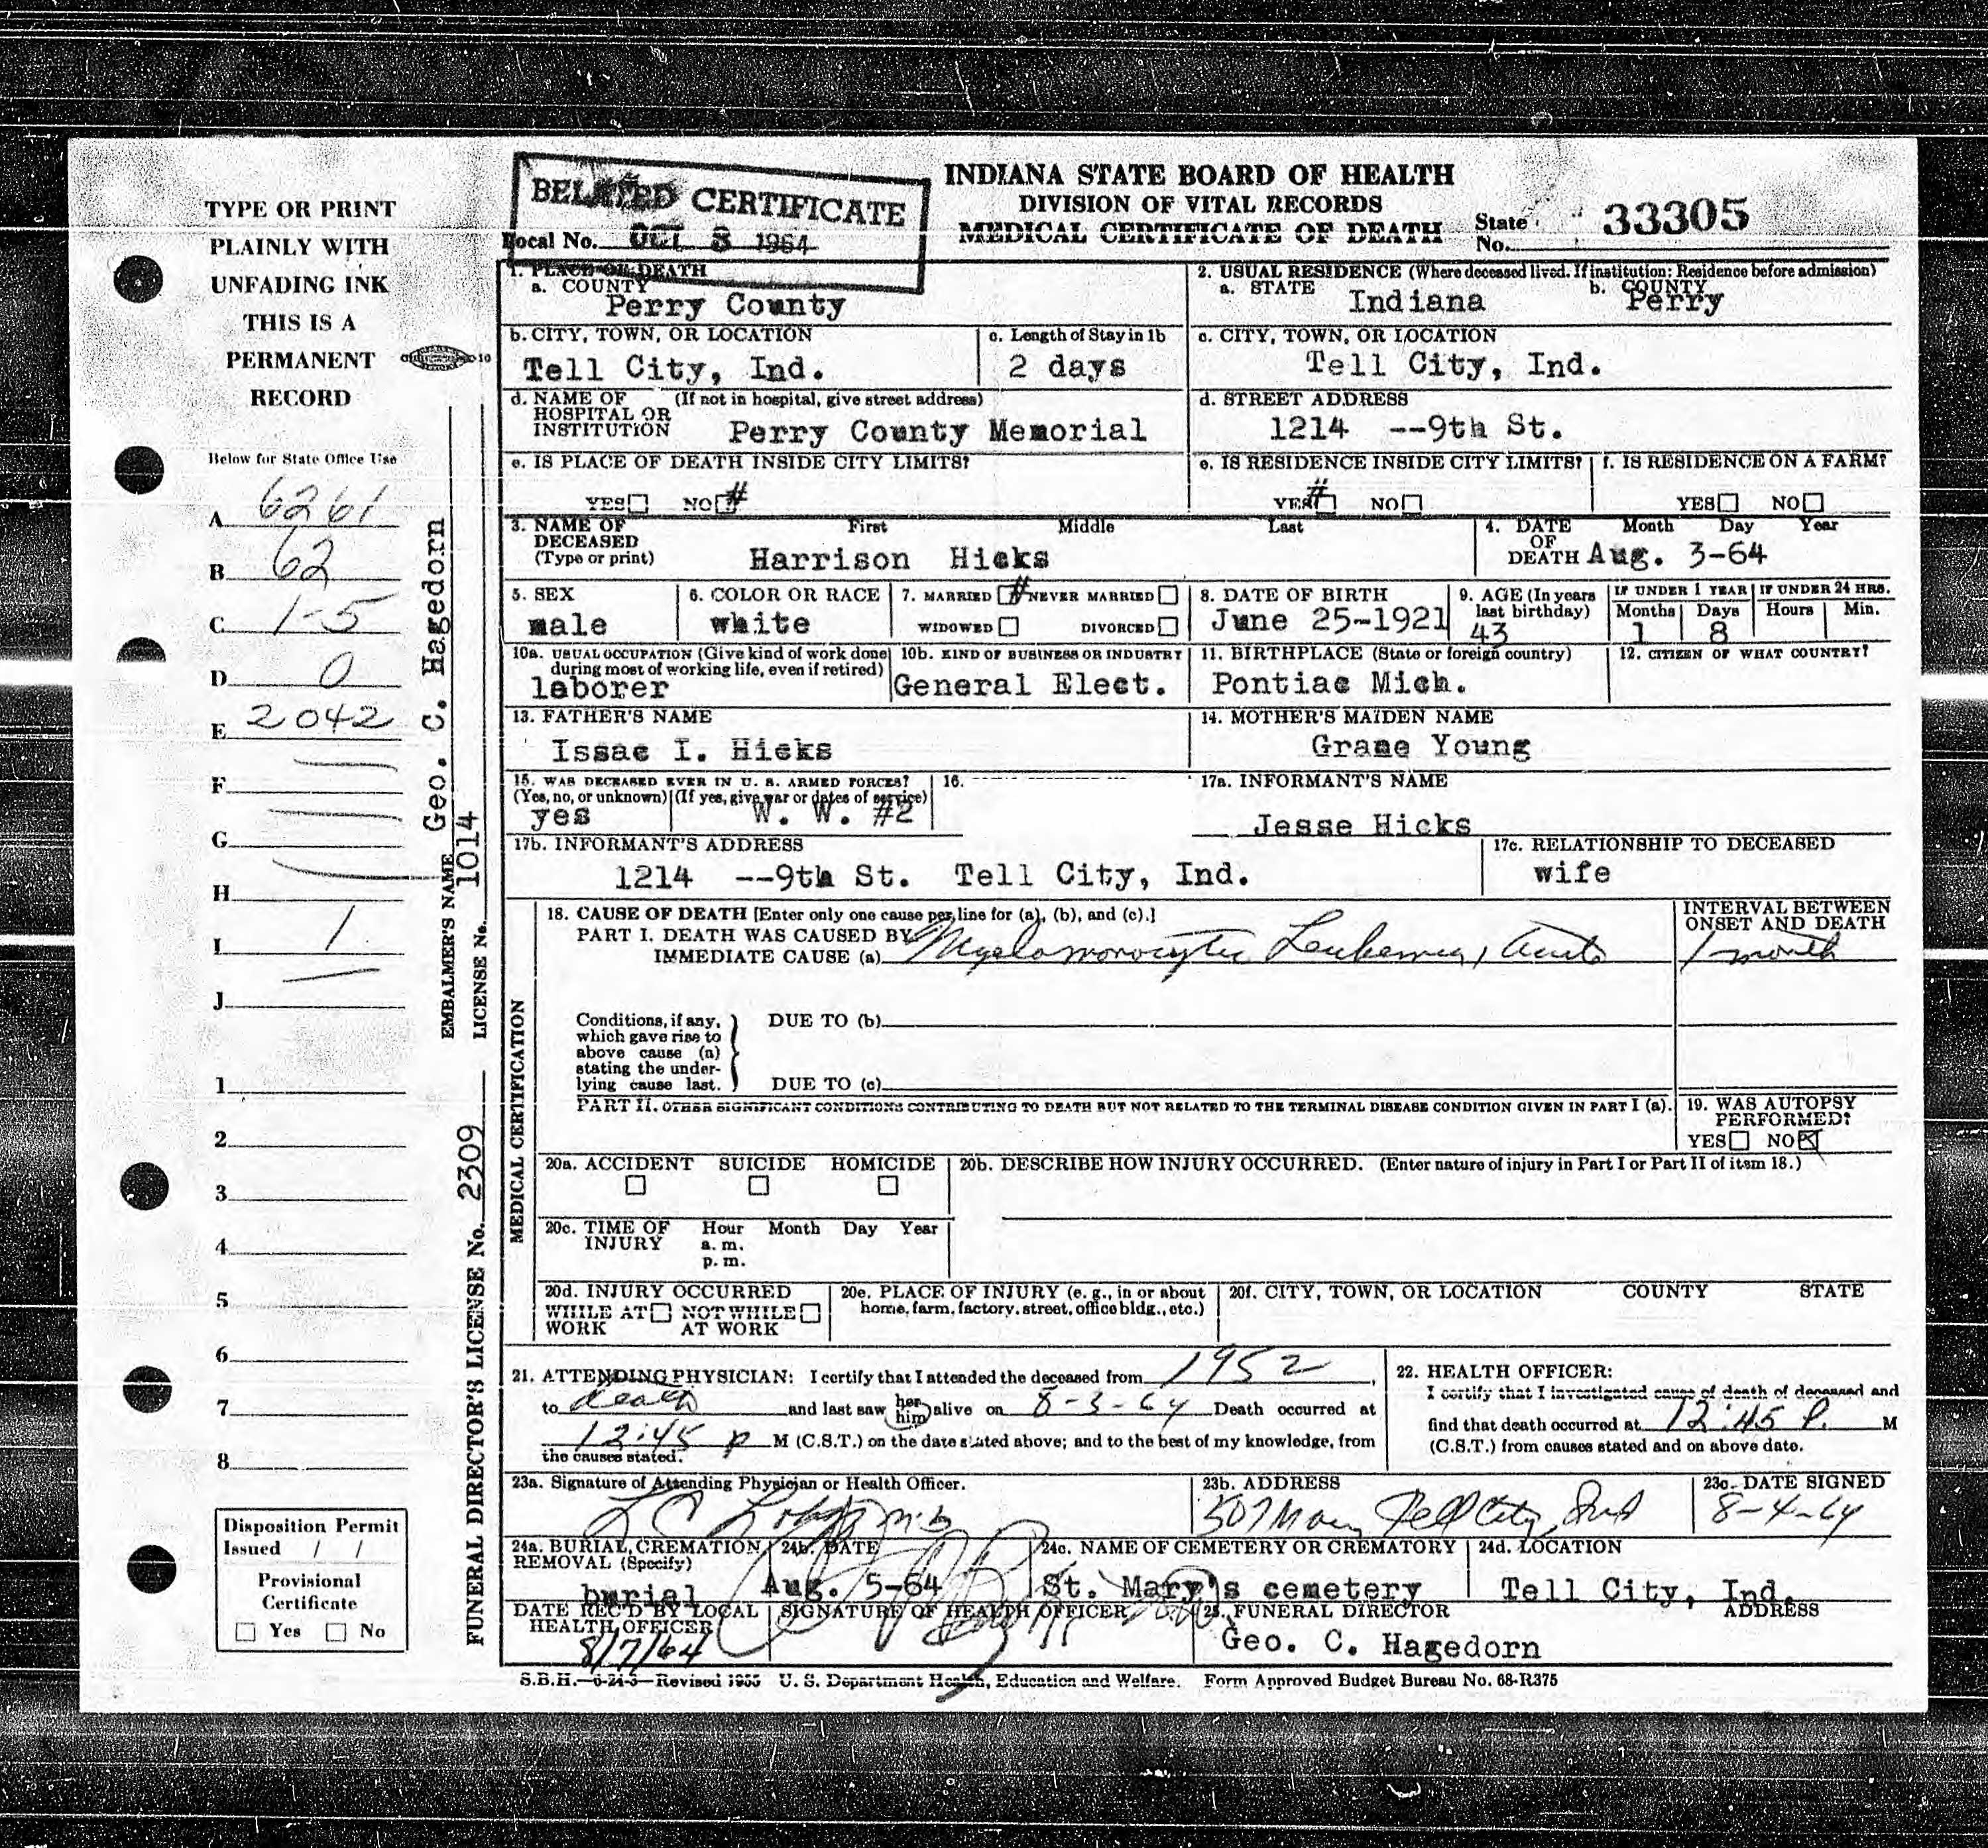 INDIANA STATE BOARD OF HEALTH
DIVISION OF VITAL RECORDS
MEDICAL CERTIFICATE OF DEATH
State No. 33305
BELATED CERTIFICATE
Local No. OCT 8 1964
TYPE OR PRINT
PLAINLY WITH
UNFADING INK
THIS IS A
PERMANENT
RECORD
Below for State Office Use
A 6261
B 62
C 1-5
D 0
E 2042
F
G
H
I 1
J
1
2
3
4
5
6
7
8
Disposition Permit
Issued / /
Provisional
Certificate
Yes No
EMBALMER'S NAME Geo. C. Hagedorn
LICENSE No. 1014
FUNERAL DIRECTOR'S LICENSE No. 2309
1. PLACE OF DEATH
a. COUNTY
Perry County
2. USUAL RESIDENCE (Where deceased lived. If institution: Residence before admission)
a. STATE Indiana b. COUNTY Perry
b. CITY, TOWN, OR LOCATION
Tell City, Ind.
c. Length of Stay in 1b
2 days
c. CITY, TOWN, OR LOCATION
Tell City, Ind.
d. NAME OF (If not in hospital, give street address)
HOSPITAL OR
INSTITUTION Perry County Memorial
d. STREET ADDRESS
1214 --9th St.
e. IS PLACE OF DEATH INSIDE CITY LIMITS?
YES NO #
e. IS RESIDENCE INSIDE CITY LIMITS?
YES # NO
f. IS RESIDENCE ON A FARM?
YES NO
3. NAME OF First Middle Last
DECEASED
(Type or print) Harrison Hicks
4. DATE Month Day Year
OF
DEATH Aug. 3-64
5. SEX
male
6. COLOR OR RACE
white
7. MARRIED # NEVER MARRIED
WIDOWED DIVORCED
8. DATE OF BIRTH
June 25-1921
9. AGE (In years
last birthday)
43
IF UNDER 1 YEAR IF UNDER 24 HRS.
Months Days Hours Min.
1 8
10a. USUAL OCCUPATION (Give kind of work done
during most of working life, even if retired)
laborer
10b. KIND OF BUSINESS OR INDUSTRY
General Elect.
11. BIRTHPLACE (State or foreign country)
Pontiac Mich.
12. CITIZEN OF WHAT COUNTRY?
13. FATHER'S NAME
Issac I. Hicks
14. MOTHER'S MAIDEN NAME
Grace Young
15. WAS DECEASED EVER IN U. S. ARMED FORCES?
(Yes, no, or unknown) (If yes, give war or dates of service)
yes W. W. #2
16.
17a. INFORMANT'S NAME
Jesse Hicks
17b. INFORMANT'S ADDRESS
1214 --9th St. Tell City, Ind.
17c. RELATIONSHIP TO DECEASED
wife
MEDICAL CERTIFICATION
18. CAUSE OF DEATH [Enter only one cause per line for (a), (b), and (c).]
PART I. DEATH WAS CAUSED BY
IMMEDIATE CAUSE (a) Myelomonocytic Leukemia, Acute
INTERVAL BETWEEN
ONSET AND DEATH
1 month
Conditions, if any,
which gave rise to
above cause (a)
stating the under-
lying cause last.
DUE TO (b)
DUE TO (c)
PART II. OTHER SIGNIFICANT CONDITIONS CONTRIBUTING TO DEATH BUT NOT RELATED TO THE TERMINAL DISEASE CONDITION GIVEN IN PART I (a).
19. WAS AUTOPSY
PERFORMED?
YES NO X
20a. ACCIDENT SUICIDE HOMICIDE
20b. DESCRIBE HOW INJURY OCCURRED. (Enter nature of injury in Part I or Part II of item 18.)
20c. TIME OF Hour Month Day Year
INJURY a. m.
p. m.
20d. INJURY OCCURRED
WHILE AT NOT WHILE
WORK AT WORK
20e. PLACE OF INJURY (e. g., in or about
home, farm, factory, street, office bldg., etc.)
20f. CITY, TOWN, OR LOCATION COUNTY STATE
21. ATTENDING PHYSICIAN: I certify that I attended the deceased from 1952,
to death and last saw her him alive on 8-3-64 Death occurred at
12:45 P M (C.S.T.) on the date stated above; and to the best of my knowledge, from
the causes stated.
22. HEALTH OFFICER:
I certify that I investigated cause of death of deceased and
find that death occurred at 12:45 P. M
(C.S.T.) from causes stated and on above date.
23a. Signature of Attending Physician or Health Officer.
23b. ADDRESS
507 Main Tell City, Ind
23c. DATE SIGNED
8-4-64
24a. BURIAL, CREMATION,
REMOVAL (Specify)
burial
24b. DATE
Aug. 5-64
24c. NAME OF CEMETERY OR CREMATORY
St. Mary's cemetery
24d. LOCATION
Tell City, Ind.
DATE REC'D BY LOCAL
HEALTH OFFICER
8/7/64
SIGNATURE OF HEALTH OFFICER
25. FUNERAL DIRECTOR ADDRESS
Geo. C. Hagedorn
S.B.H.—6-24-3—Revised 1955 U. S. Department Health, Education and Welfare. Form Approved Budget Bureau No. 68-R375